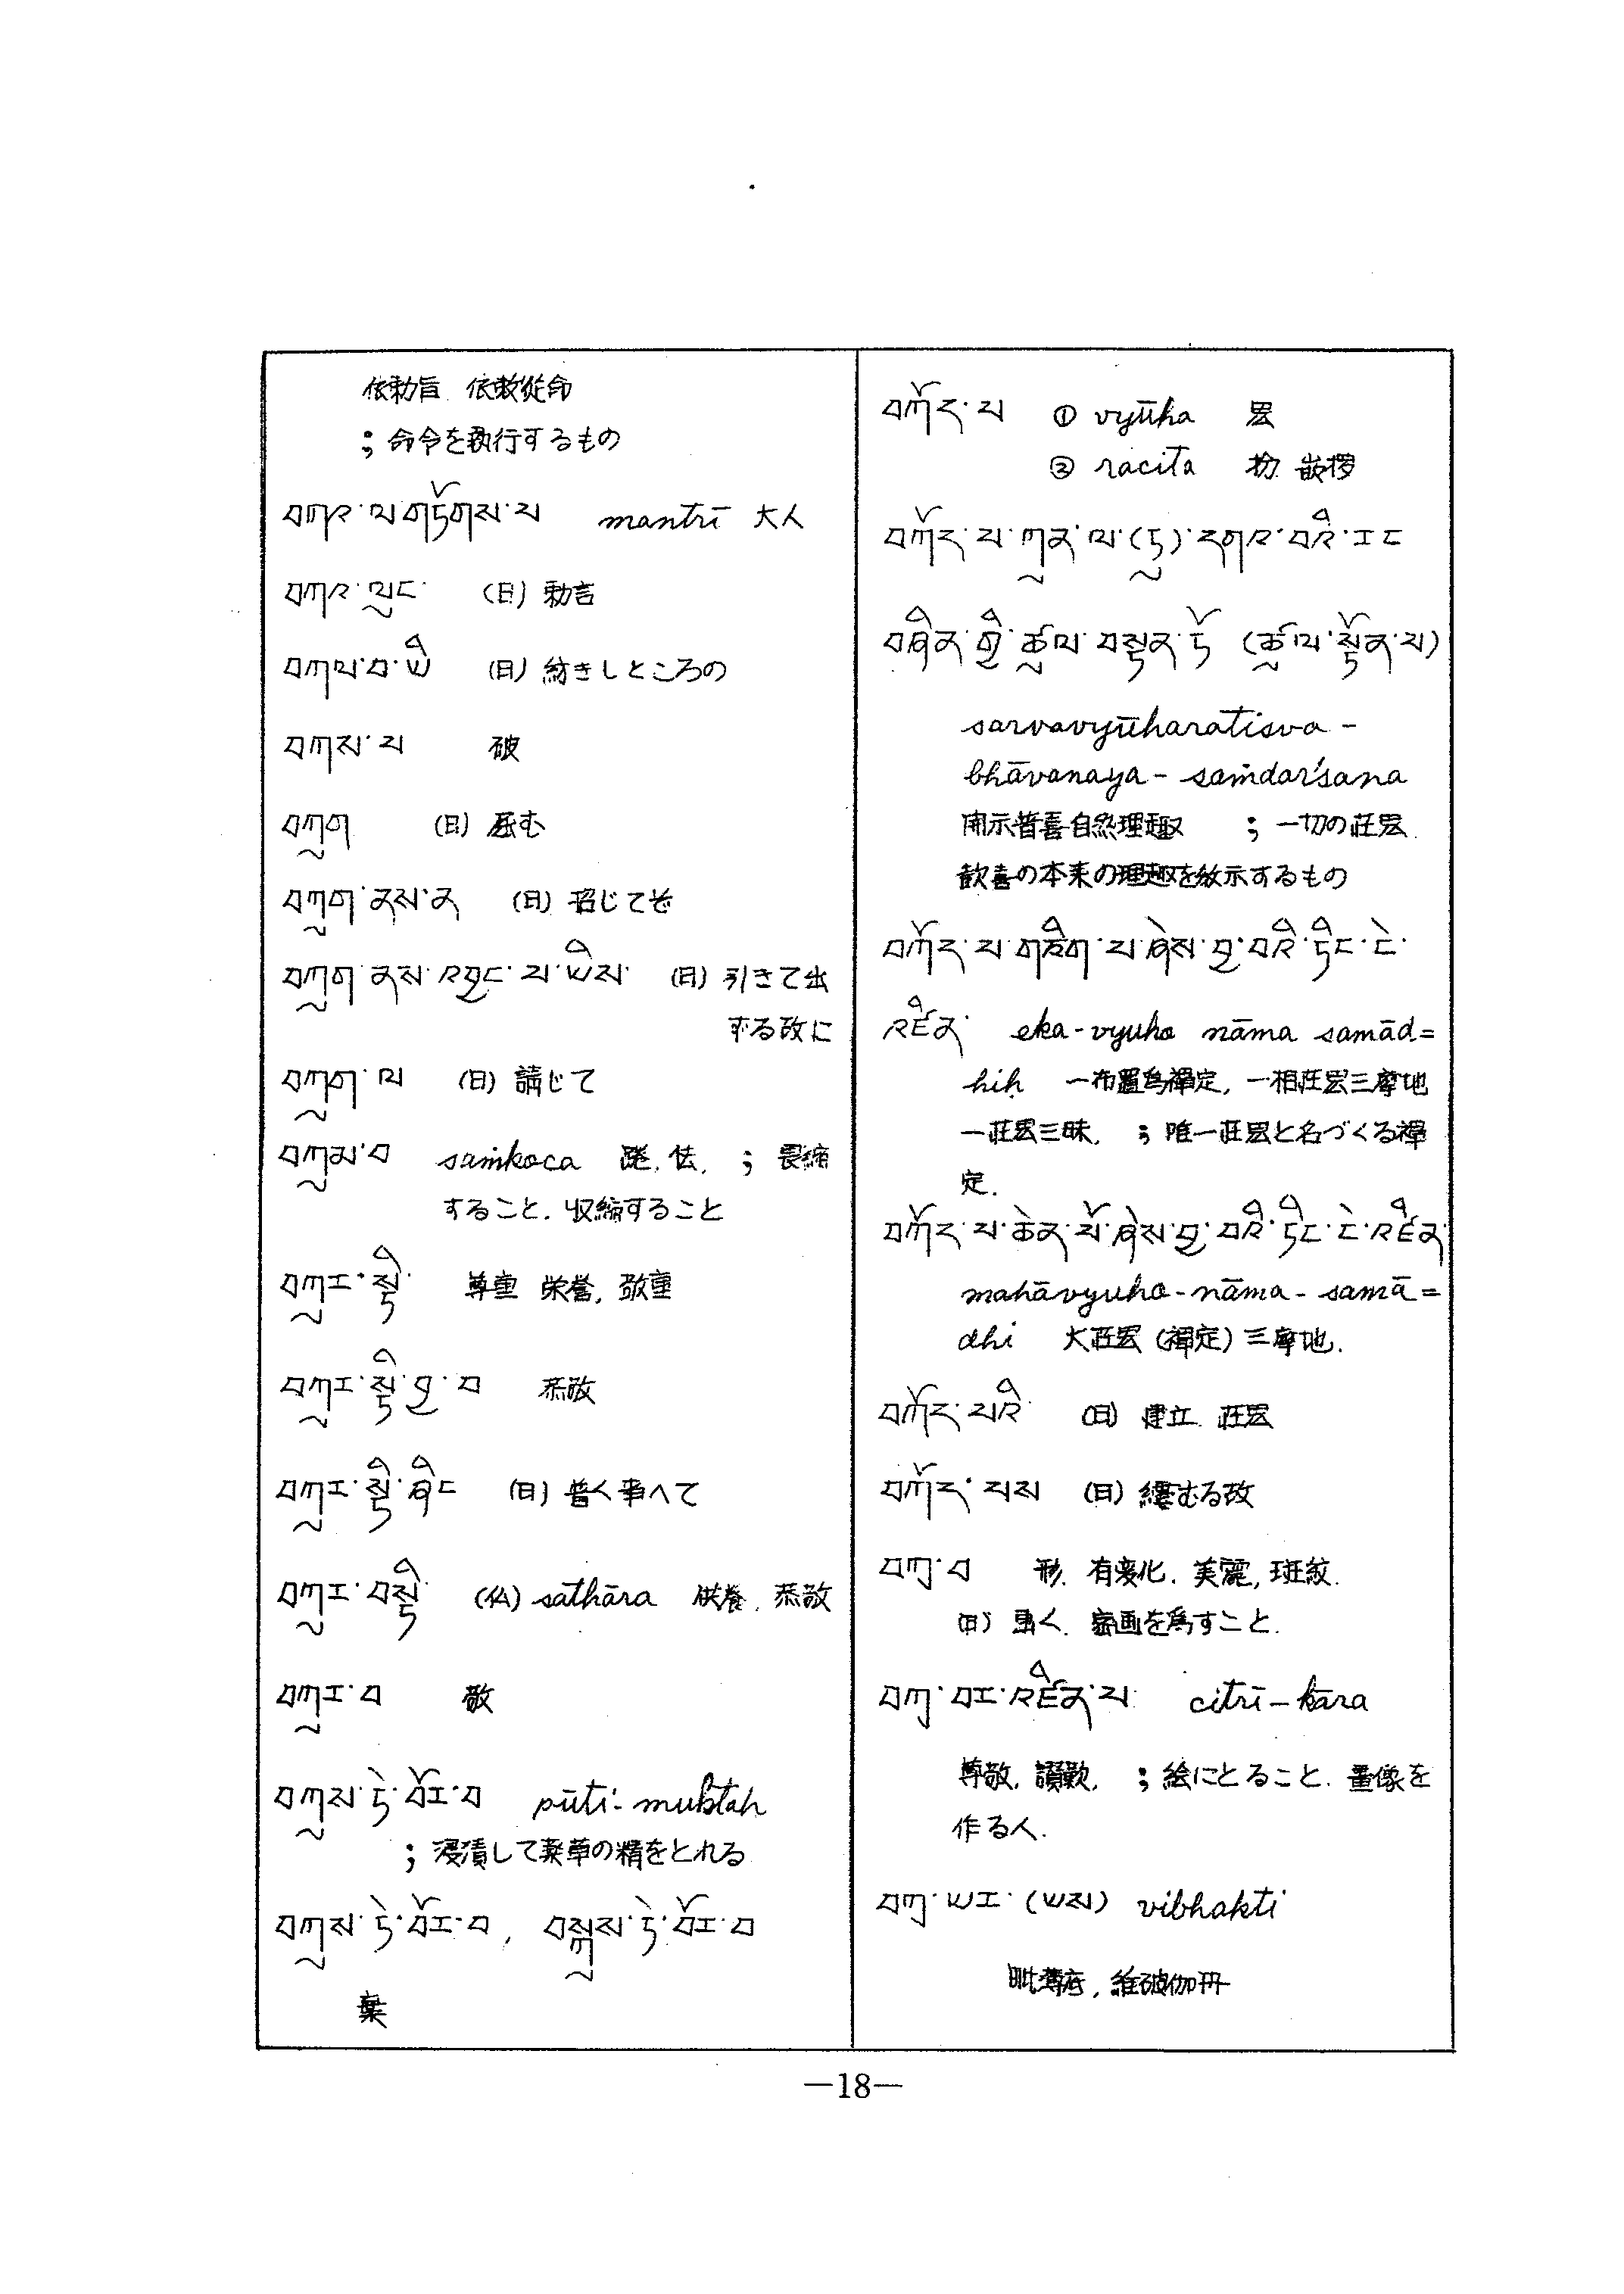 依勅旨 依教従命
；命令を執行するもの
བཀའ་ལ་གཏོགས་པ mantrī 大人
བཀའ་ལུང་ (日) 勅言
བཀལ་བ་ཡི (日) 紡きしところの
བཀས་པ 破
བཀུག (日) 屈む
བཀུག་ནས་ན (日) 招じて
བཀུག་ནས་འབྱུང་བ་ཡིས་ (日) 引きて出
ずる故に
བཀུག་ལ (日) 請じて
བཀུམ་བ saṁkoca 怯, ； 畏縮
すること. 収縮すること
བཀུར་སྟི་ 尊重 栄誉, 敬重
བཀུར་སྟི་བྱ་བ 恭敬
བཀུར་སྟི་ཞིང (日) 普く事へて
བཀུར་བསྟི་ (仏) sathāra 供養, 恭敬
བཀུར་བ 敬
བཀུས་ཏེ་བོར་བ pūti-muktaḥ
；浸漬して薬草の精をとれる
བཀུས་ཏེ་བོར་བ, བསྐུས་ཏེ་བོར་བ
棄
བཀོད་པ ① vyūha 㘽
② racita 扮 嵌
བཀོད་པ་ཀུན་ལ་(ཏུ)་དགའ་བའི་རང
བཞིན་གྱི་ཚུལ་བསྟན་ཏོ (ཚུལ་སྟོན་པ)
sarvavyūharatisva-
bhāvanaya-saṁdarśana
開示普喜自然理趣 ；一切の荘厳
歓喜の本来の理趣を敎示するもの
བཀོད་པ་གཅིག་པ་ཞེས་བྱ་བའི་ཏིང་ངེ་
འཛིན་ eka-vyuho nāma samād=
hiḥ 一布置為禪定, 一相荘厳三摩地
一荘厳三昧, ；唯一荘厳と名づくる禪
定.
བཀོད་པ་ཆེན་པོ་ཞེས་བྱ་བའི་ཏིང་ངེ་འཛིན་
mahāvyuho-nāma-samā=
dhi 大荘厳 (禪定) 三摩地.
བཀོད་པའི་ (日) 建立 荘厳
བཀོད་པས (日) むる故
བཀྲ་བ 形. 有変化. 美麗, 斑紋.
(日) 畵く. 密画を為すこと.
བཀྲ་བར་འཛིན་པ་ citrī-kāra
尊敬, 讃歎, ；絵にとること. 畵像を
作る人.
བཀྲ་ཡར་(ཡས) vibhakti
毗薄底, 維破伽
—18—